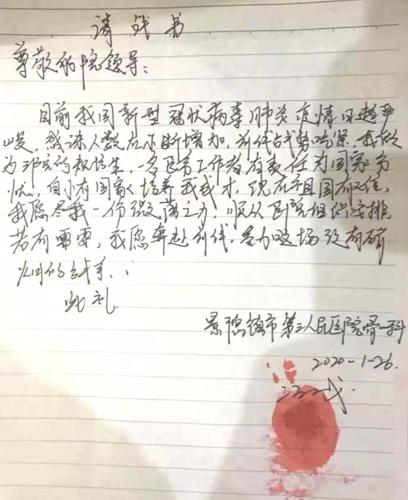 请战书
尊敬的院领导：
目前我国新型冠状病毒肺炎疫情日趋严
峻，感染人数在不断增加，前线战势吃紧，我做
为邛院的规培生，身医务工作者有责任为国家分
忧，自小有国家培养我成才，现在祖国有
我愿尽我一份微薄之力，顺从医院组织安排
若有需要，我愿奔赴前线，参加这场没有硝
烟的战争：
此礼
景德镇市第三人民医院骨科
2020-1-26.